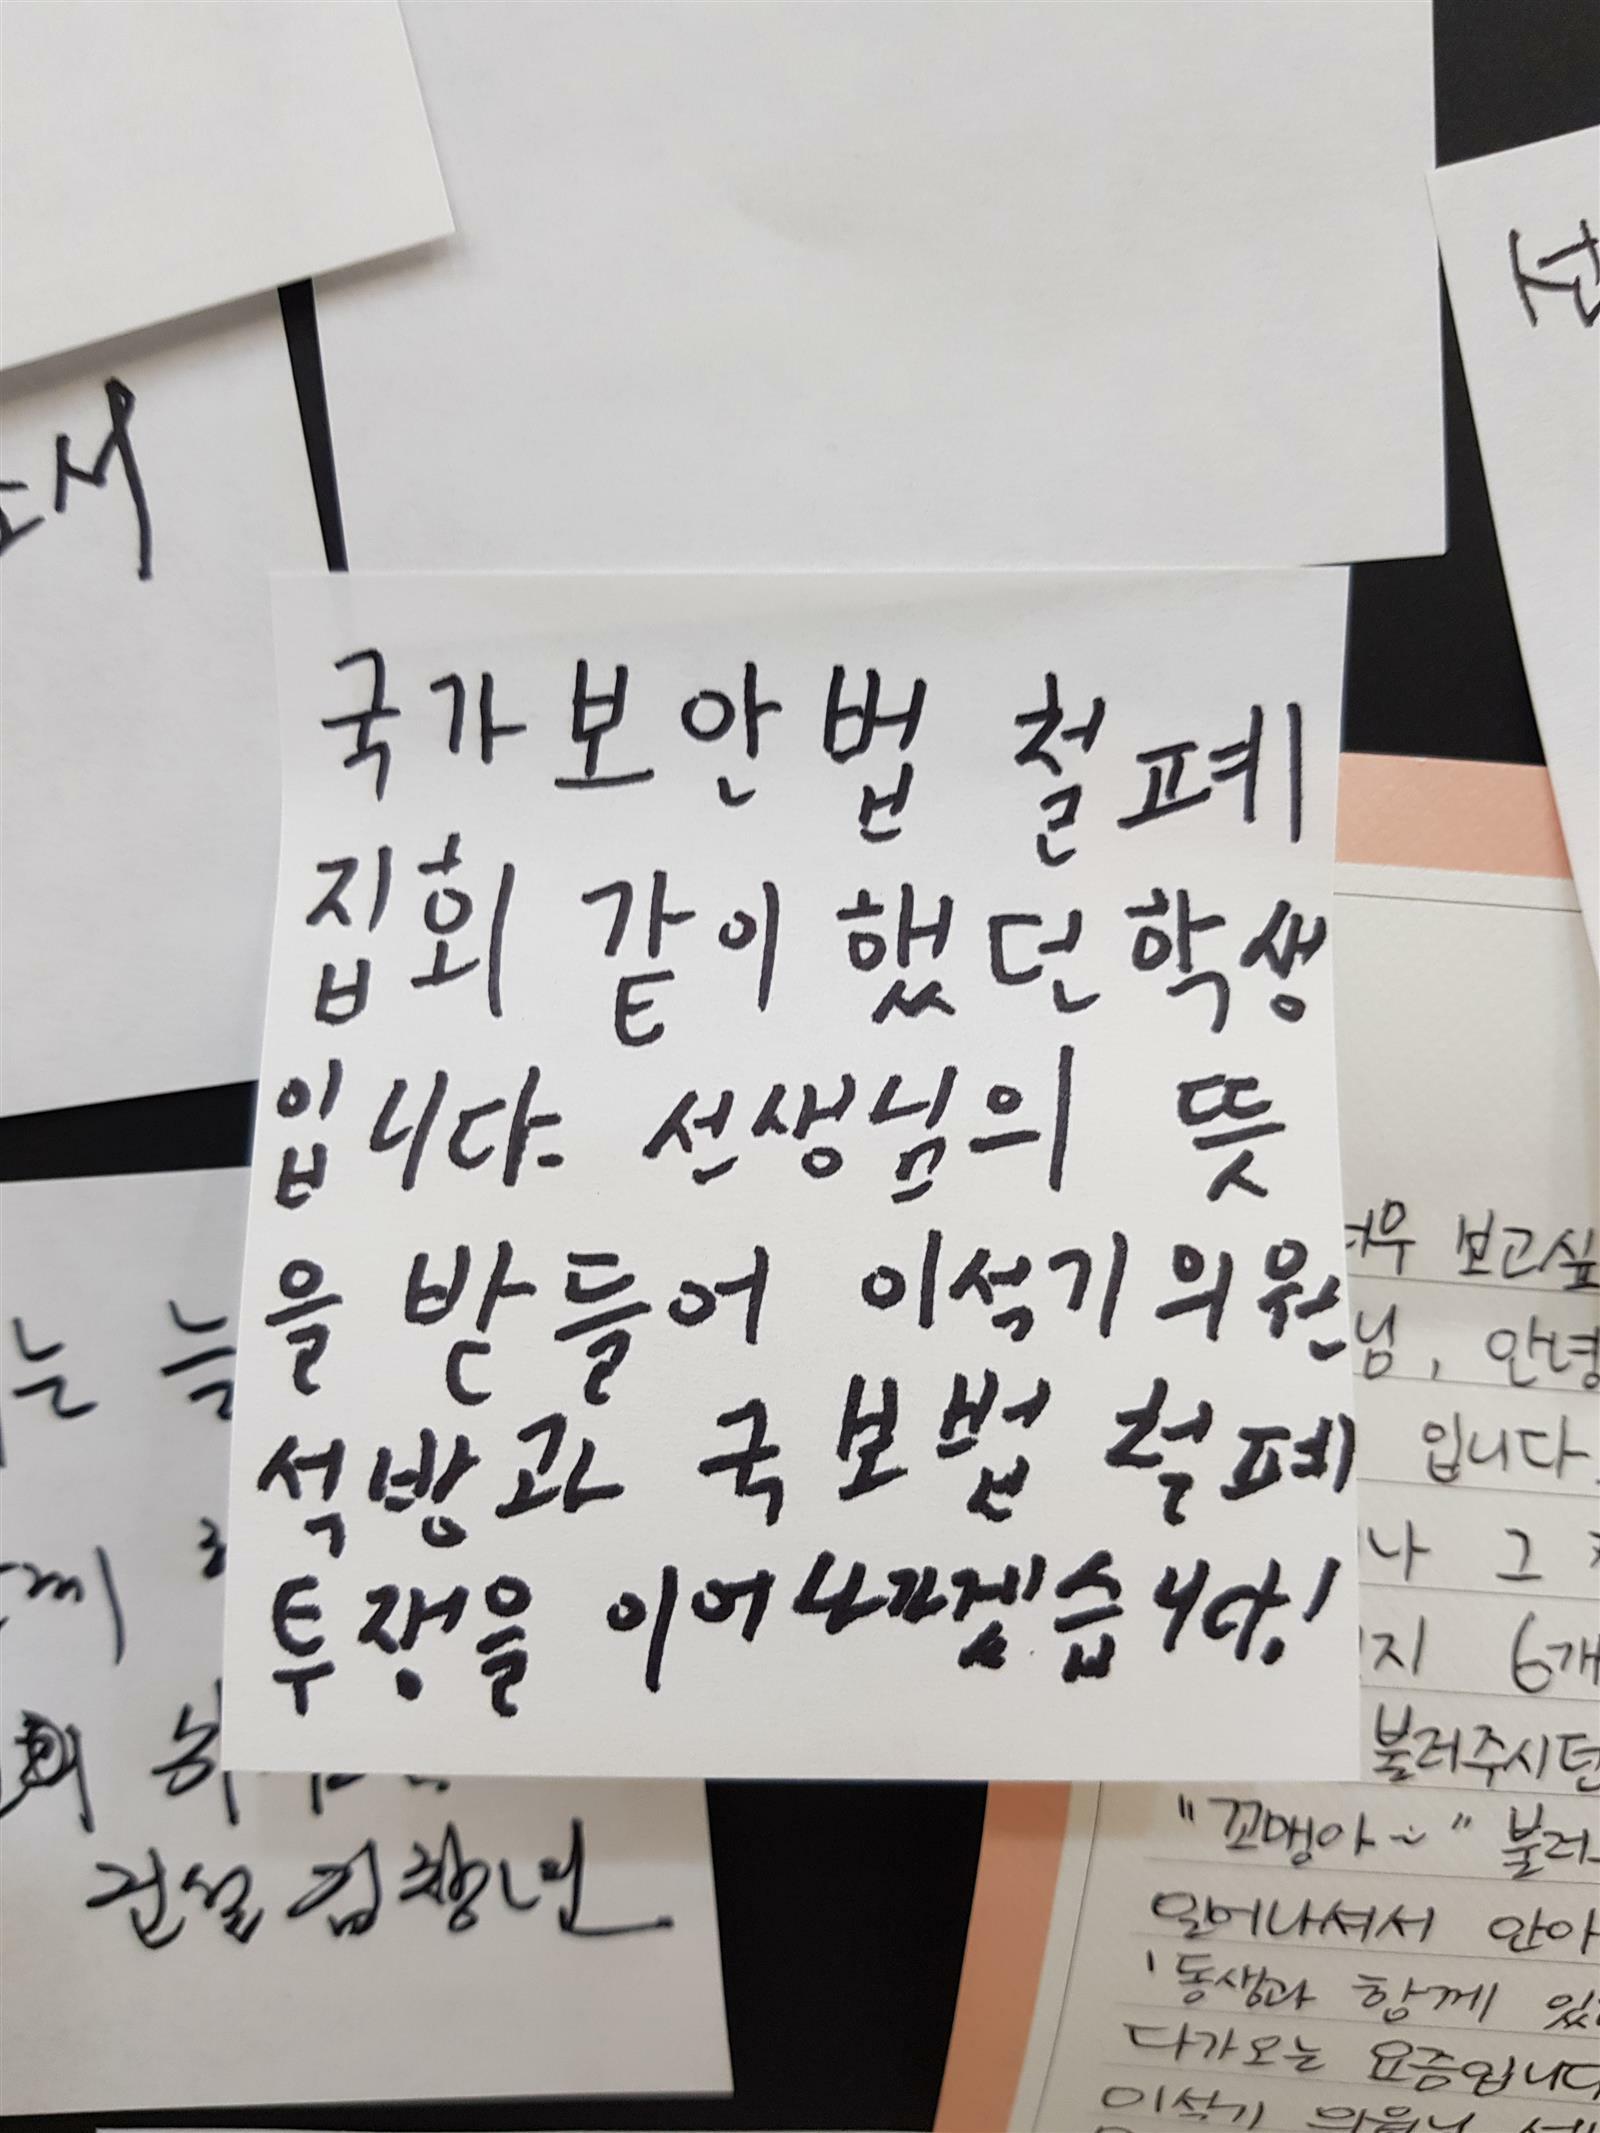 국가보안법 철폐
집회 같이 했던 학생
입니다. 선생님의 뜻
을 받들어 이석기의원
석방과 국보법 철폐
투쟁을 이어나가겠습니다!
서
는 늘
건설
보고싶
님, 안녕
입니다.
나 그
지 6개
불러주시던
"꼬맹아~" 불러
일어나셔서 안아
'동생과 함께
다가오는 요즘입니다
이석기